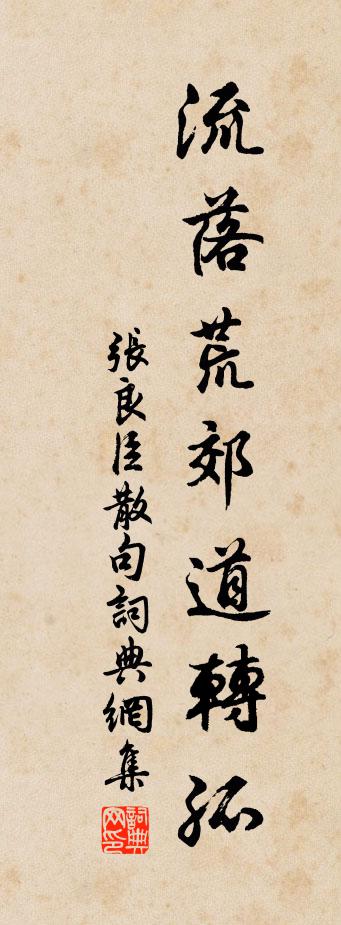 流落荒郊道轉孤
張良臣散句詞典網集
詞典网印